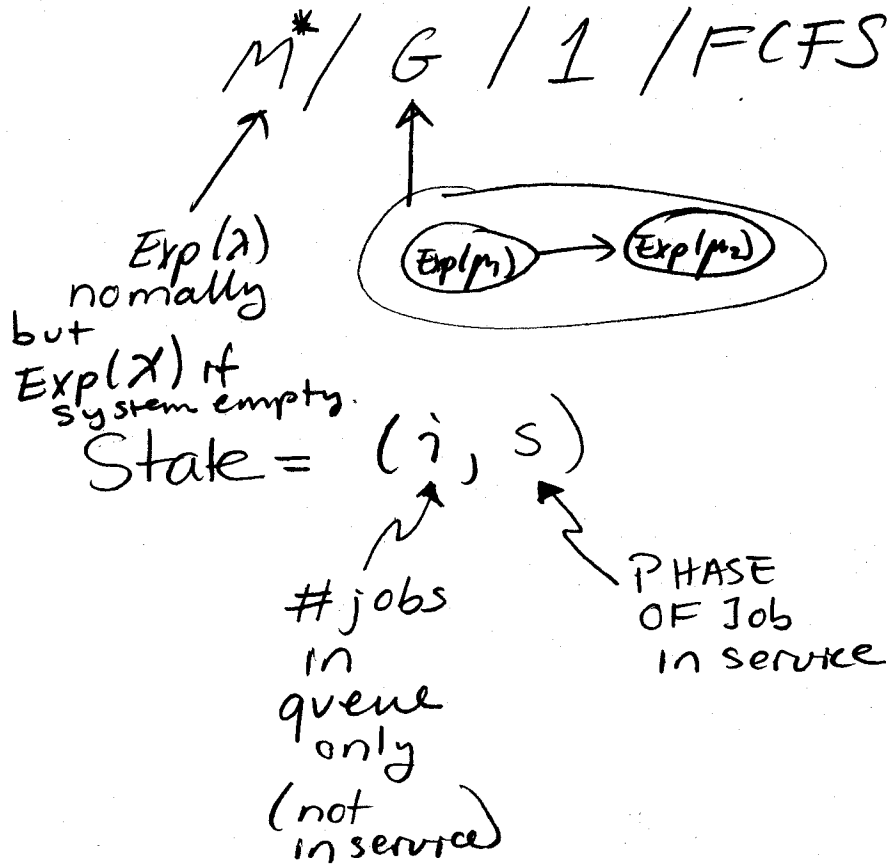 M*/ G / 1 / FCFS
Exp(λ)
nomally
but
Exp(λ') if
system empty.
Exp(μ1) Exp(μ2)
State = (i, s)
# jobs
in
queue
only
(not
in service)
PHASE
OF Job
in service